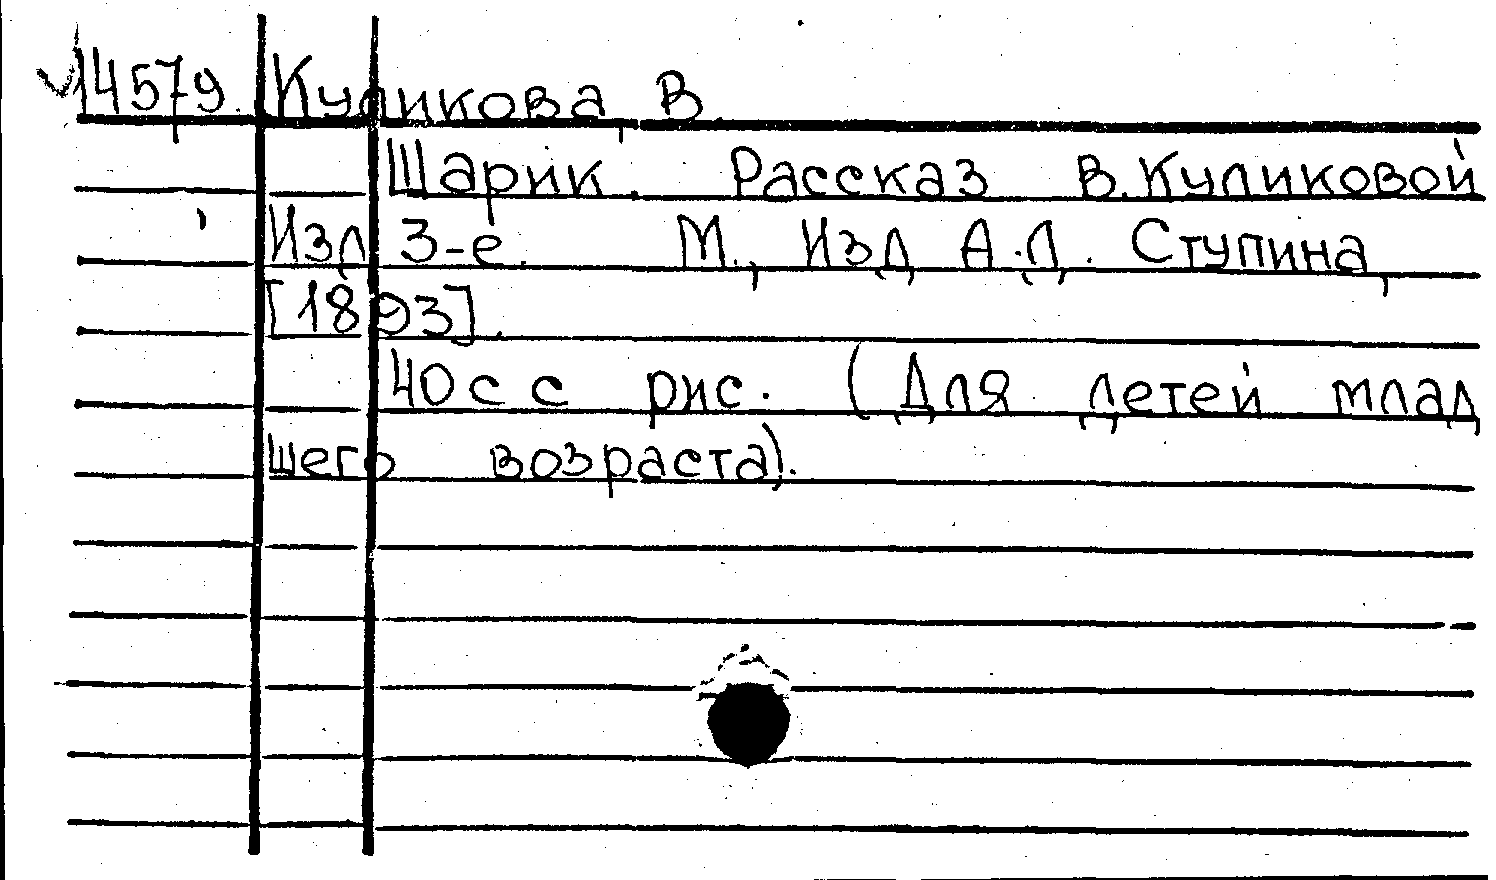 14579 Куликова, В.
Шарик. Рассказ В. Куликовой
Изд 3-е. М., Изд. А.Д. Ступина,
[1893].
40 с с рис. (Для детей млад
шего возраста).